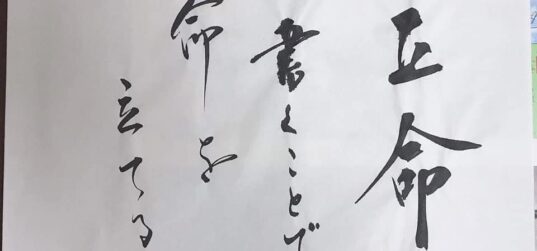 正命
書くことで
命を
立てる